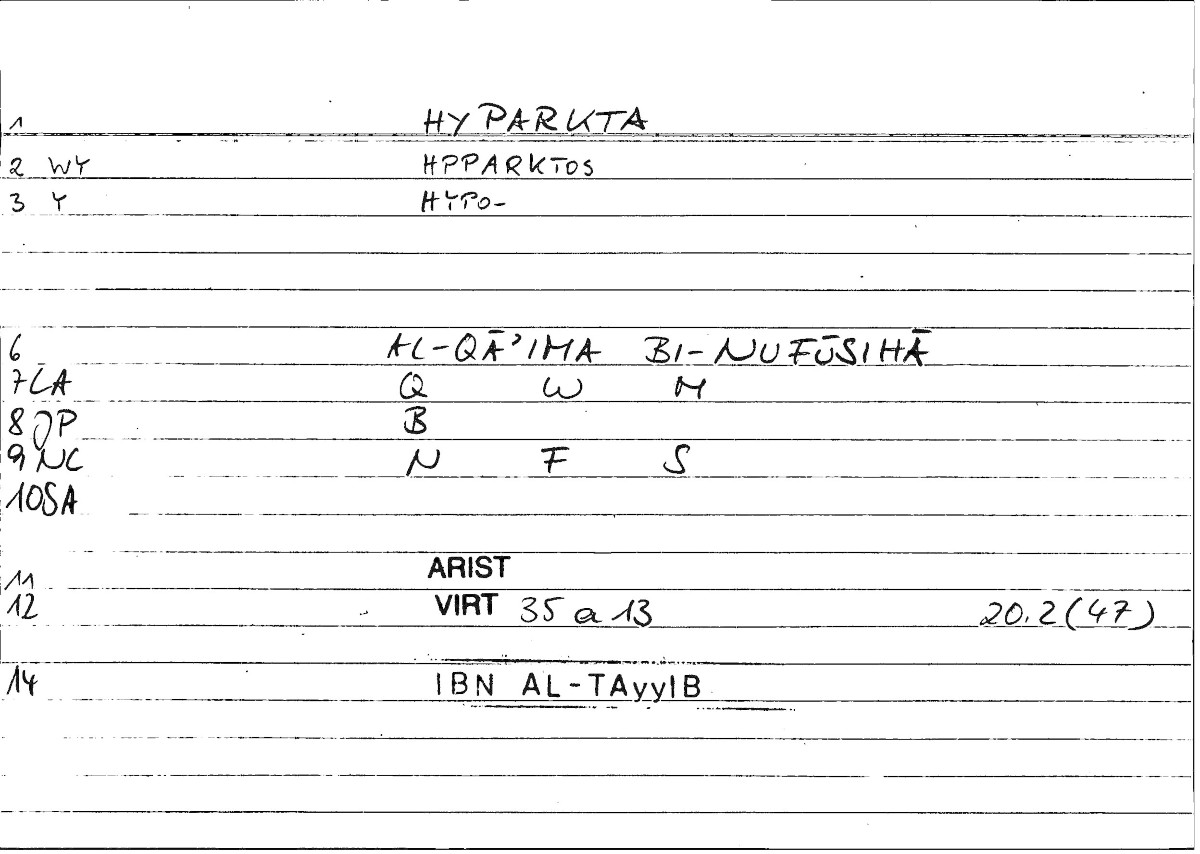 1 HYPARKTA
2 WY HPPARKTOS
3 Y HYPO-
6 AL-QĀ’IMA BI-NUFŪSIHĀ
7 LA Q W M
8 JP B
9 NC N F S
10 SA
11 ARIST
12 VIRT 35 a 13 20.2 (47)
14 IBN AL-TAyyIB